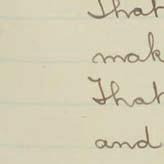 That
mak
That
and